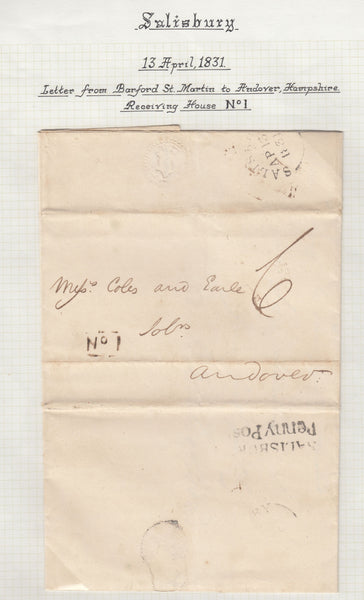 Salisbury
13 April, 1831.
Letter from Barford St. Martin to Andover, Hampshire
Receiving House No 1
Messrs. Coles and Earle
6
Solrs
No 1
Andover
SALISBURY
Penny Post